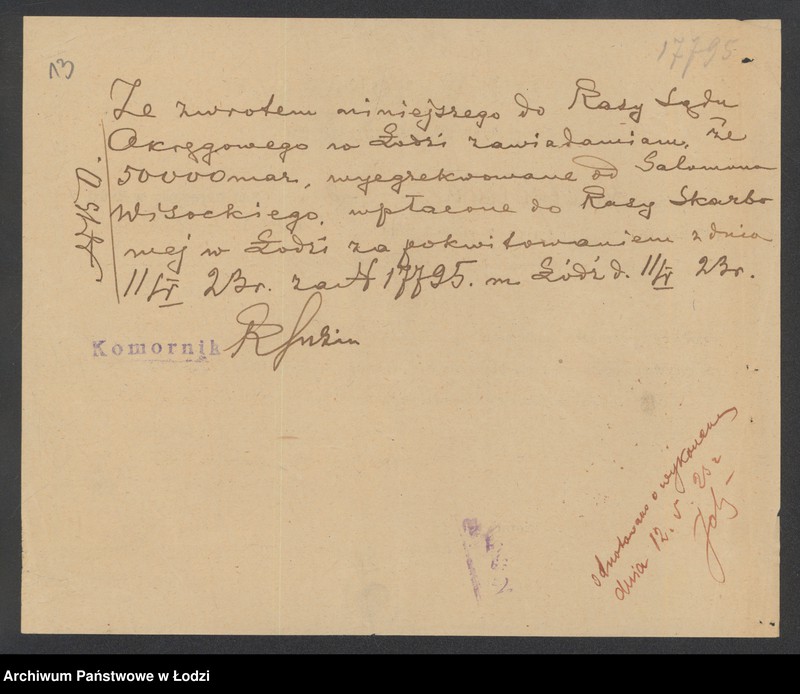 13
17795
Ze zwrotem niniejszego do Kasy Sądu
Okręgowego w Łodzi zawiadamiam, że
50000 mar. wyegzekwowane od Salomona
Wisockiego, wpłacone do Kasy Skarbo
wej w Łodzi za pokwitowaniem z dnia
11/V 23 r. za N 17795. m Łódź d. 11/V 23 r.
Komornik
odnotowano o wykonaniu
dnia 12. V. 23 r